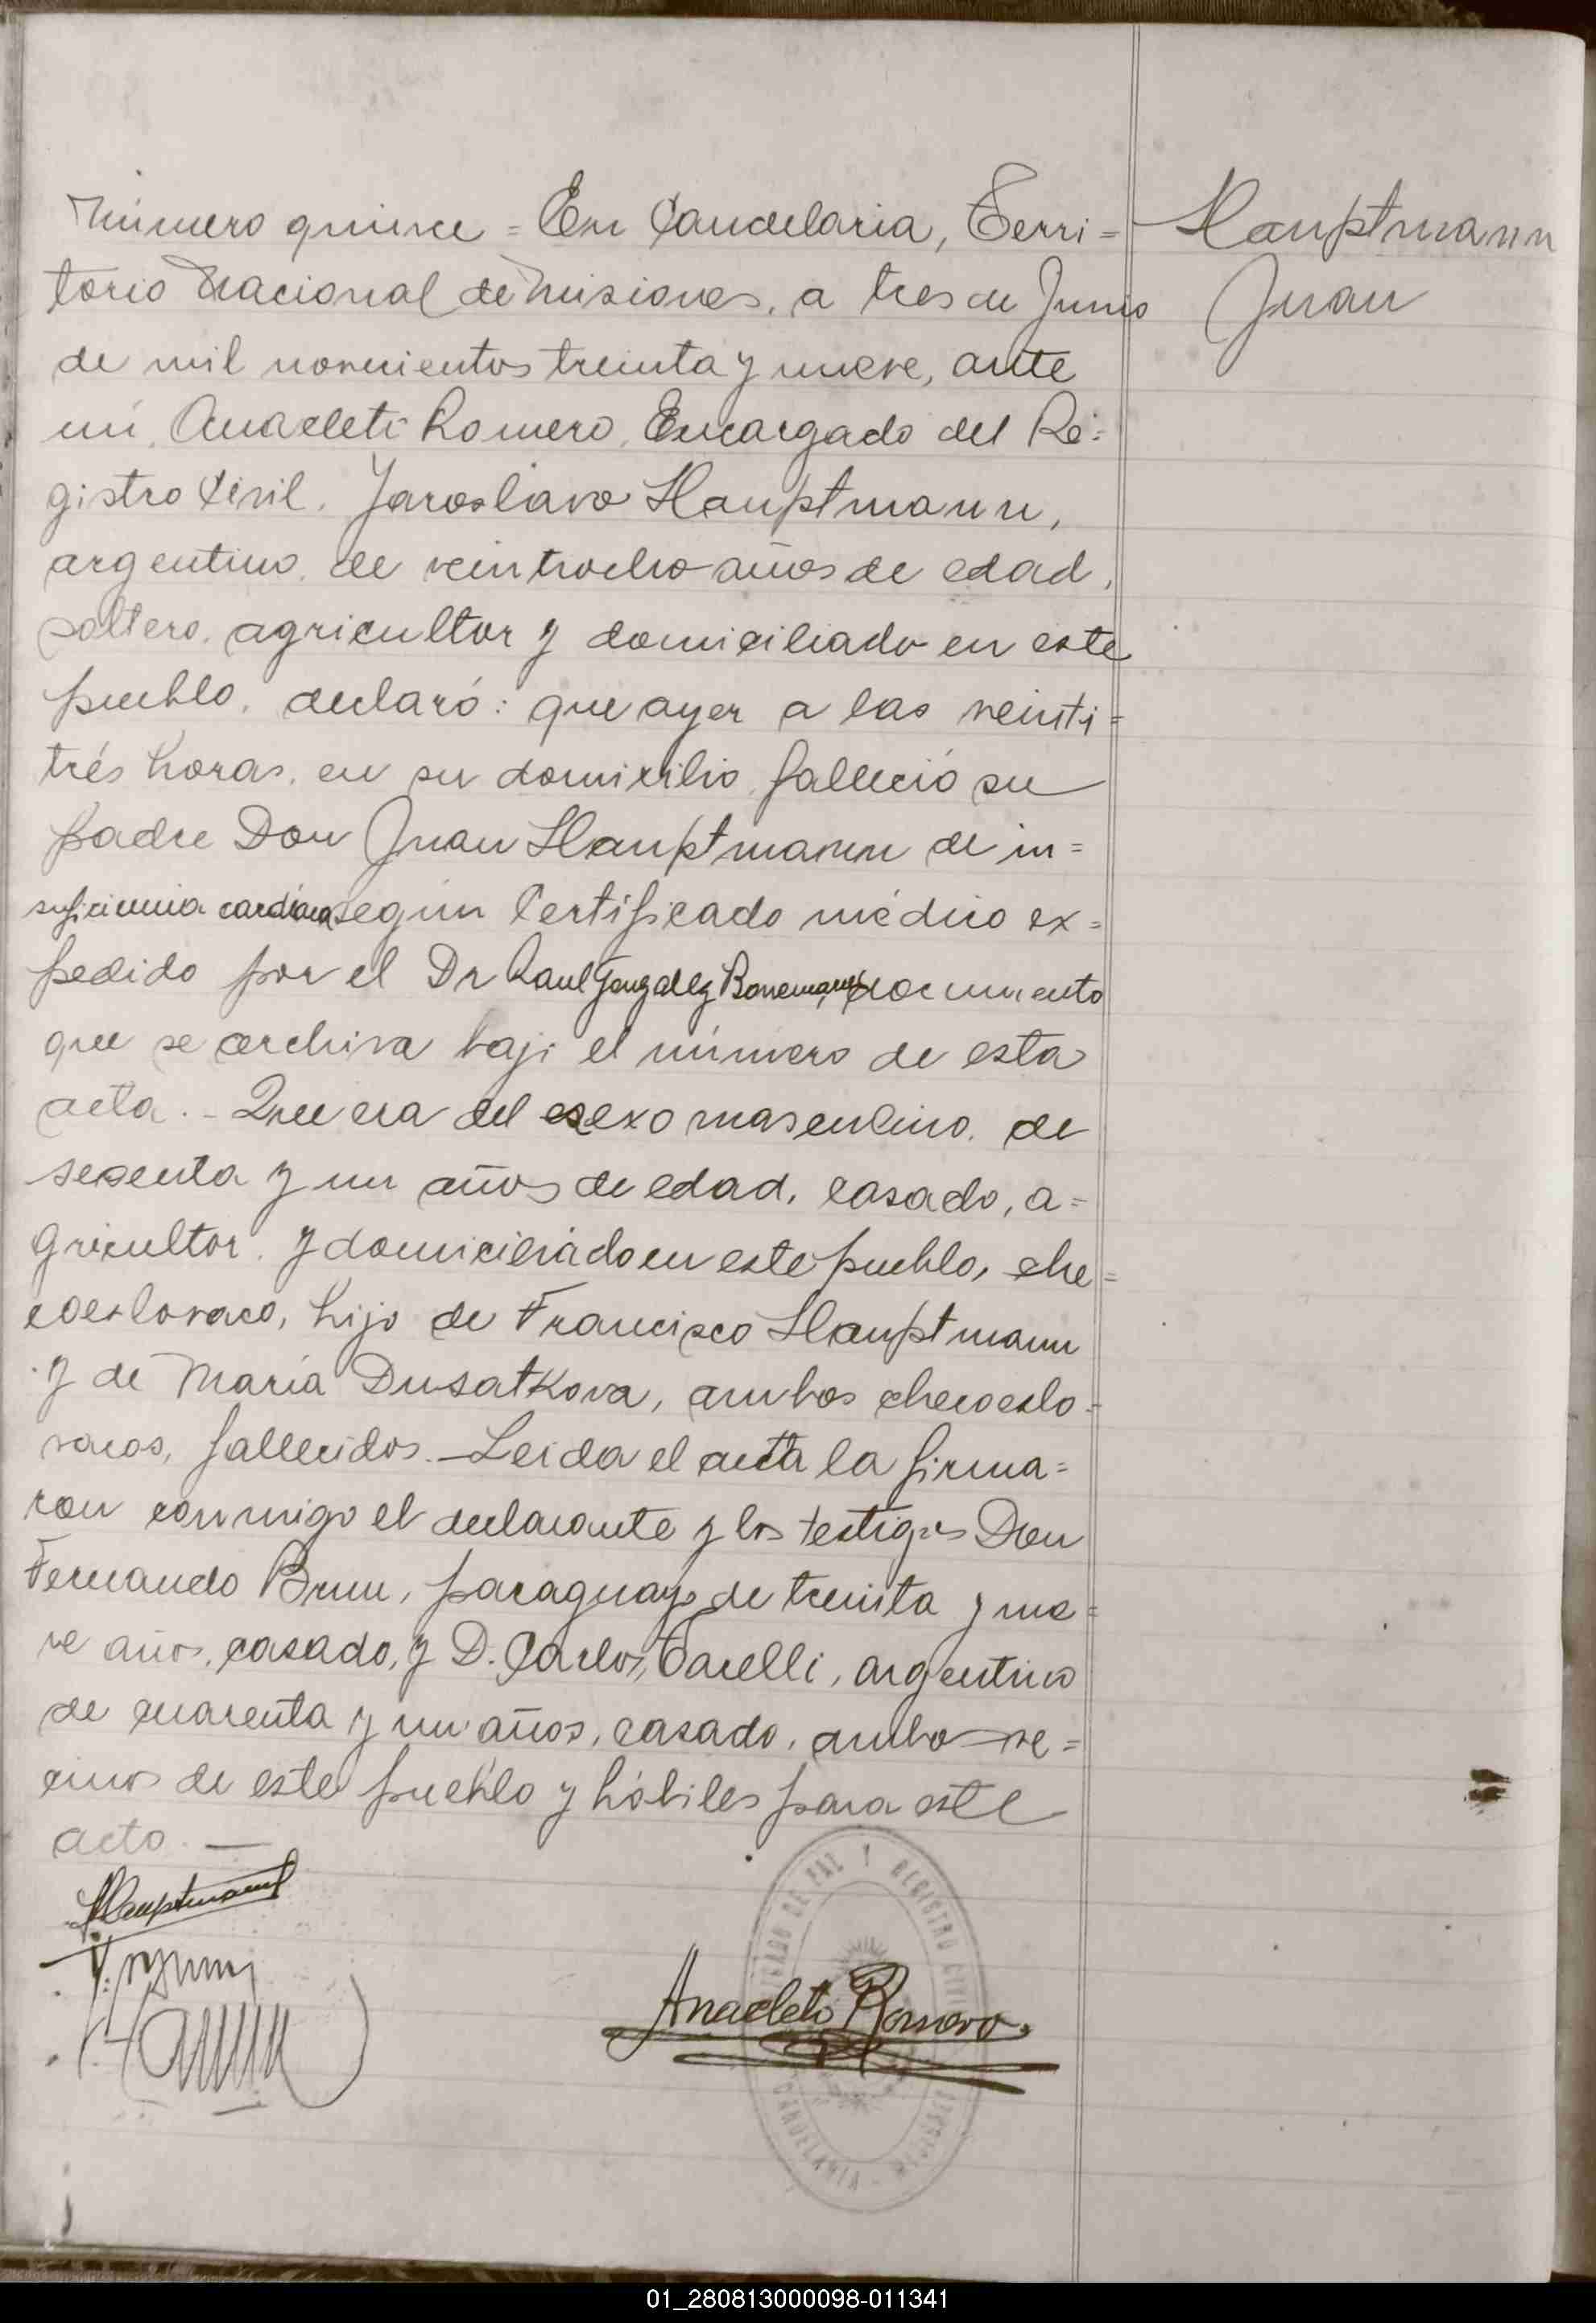 Número quince = En Candelaria, Terri=
torio Nacional de Misiones, a tres de Junio
de mil novecientos treinta y nueve, ante
mí, Anacleto Romero, Encargado del Re=
gistro Civil, Jaroslavo Hauptmann,
argentino, de veintiocho años de edad,
soltero, agricultor y domiciliado en este
pueblo, declaró: que ayer a las veinti=
trés horas, en su domicilio, falleció su
padre Don Juan Hauptmann de in=
suficiencia cardíaca según Certificado médico ex=
pedido por el Dr Raul Gonzalez documento
que se archiva bajo el número de esta
acta.- Que era del sexo masculino, de
sesenta y un años de edad, casado, a=
gricultor, y domiciliado en este pueblo, che=
coeslovaco, hijo de Francisco Hauptmann
y de María Dusatkova, ambos checoeslo=
vacos, fallecidos.- Leida el acta la firma=
ron conmigo el declarante y los testigos Don
Fernando Brun, paraguayo de treinta y nue=
ve años, casado, y D. Carlos Tarelli, argentino
de cuarenta y un años, casado, ambos ve=
cinos de este pueblo y hábiles para este
acto. —
Hauptmann
Juan
Hauptmann
Anacleto Romero
JUZGADO DE PAZ Y REGISTRO CIVIL
CANDELARIA - MISIONES
01_280813000098-011341